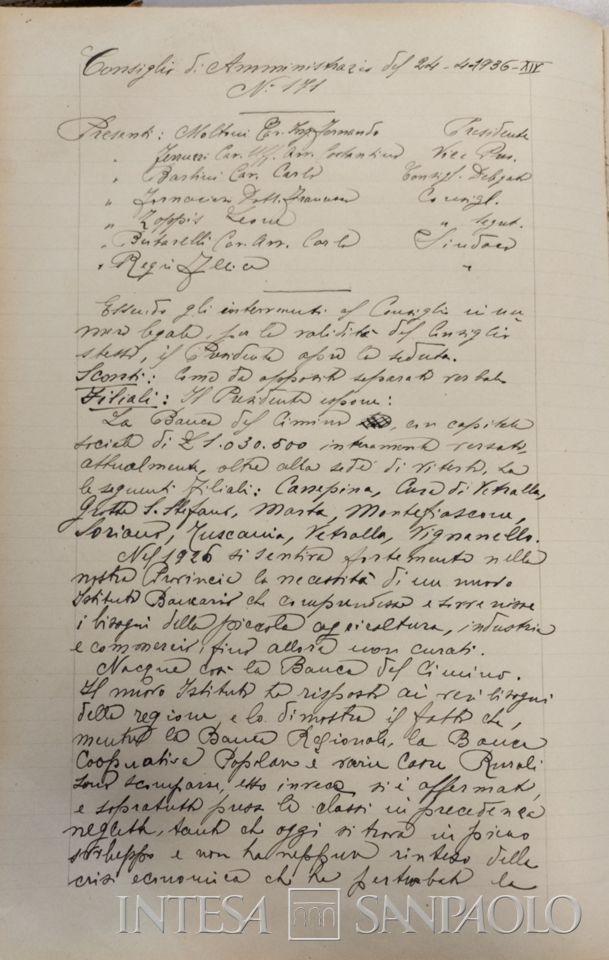 Consiglio di Amministrazio del 24-4-1936-XIV
N. 171
Presenti: Moltoni Fernando Presidente
" Ferruzzi Cav. Uff. Avv. Costantino Vice Pres.
" Bastini Cav. Carlo Consigl. Delegato
" Dott. Francesco Consigl.
" Zoppis Leone " segret.
" Butarelli Cav. Avv. Carlo Sindaco
" Regis "
Essendo gli intervenuti al Consiglio in nu
mero legale, per la validità del Consiglio
stesso, il Presidente apre la seduta.
Sconti: Come da apposito separato verbale
Filiali: Il Presidente espone:
La Banca del Cimino, con capitale
sociale di £ 1.030.500 interamente versato,
attualmente, oltre alla sede di Viterbo, ha
le seguenti Filiali: Canepina, Cura di Vetralla,
Grotte S. Stefano, Marta, Montefiascone,
Soriano, Tuscania, Vetralla, Vignanello.
Nel 1926 si sentiva fortemente nella
nostra Provincia la necessità di un nuovo
Istituto Bancario che comprendesse e sovvenisse
i bisogni della piccola agricoltura, industria
e commercio, fino allora non curati.
Nacque così la Banca del Cimino.
Il nuovo Istituto ha risposto ai veri bisogni
della regione, e lo dimostra il fatto che,
mentre la Banca Regionale, la Banca
Cooperativa Popolare e varie Casse Rurali
sono scomparse, esso invece si è affermato,
e sopratutto presso le classi in precedenza
neglette, tanto che oggi si trova in pieno
sviluppo e non ha neppure risentito della
crisi economica che ha perturbato la
INTESA SANPAOLO